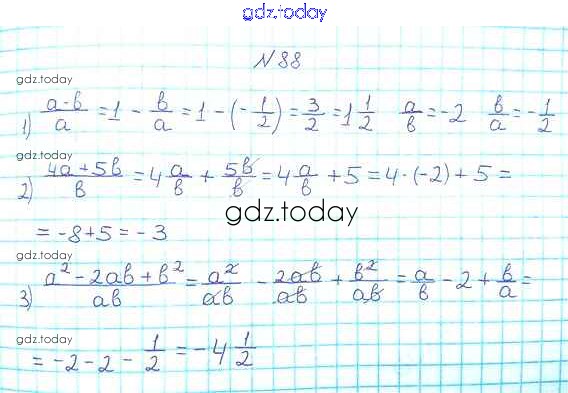 gdz.today
№ 88
gdz.today
1) (a-b)/a = 1 - b/a = 1 - (-1/2) = 3/2 = 1 1/2 a/b = -2 b/a = -1/2
gdz.today
2) (4a+5b)/b = 4 a/b + 5b/b = 4 a/b + 5 = 4·(-2)+5 =
gdz.today
= -8+5 = -3
gdz.today
3) (a²-2ab+b²)/ab = a²/ab - 2ab/ab + b²/ab = a/b - 2 + b/a =
gdz.today
= -2-2 - 1/2 = -4 1/2